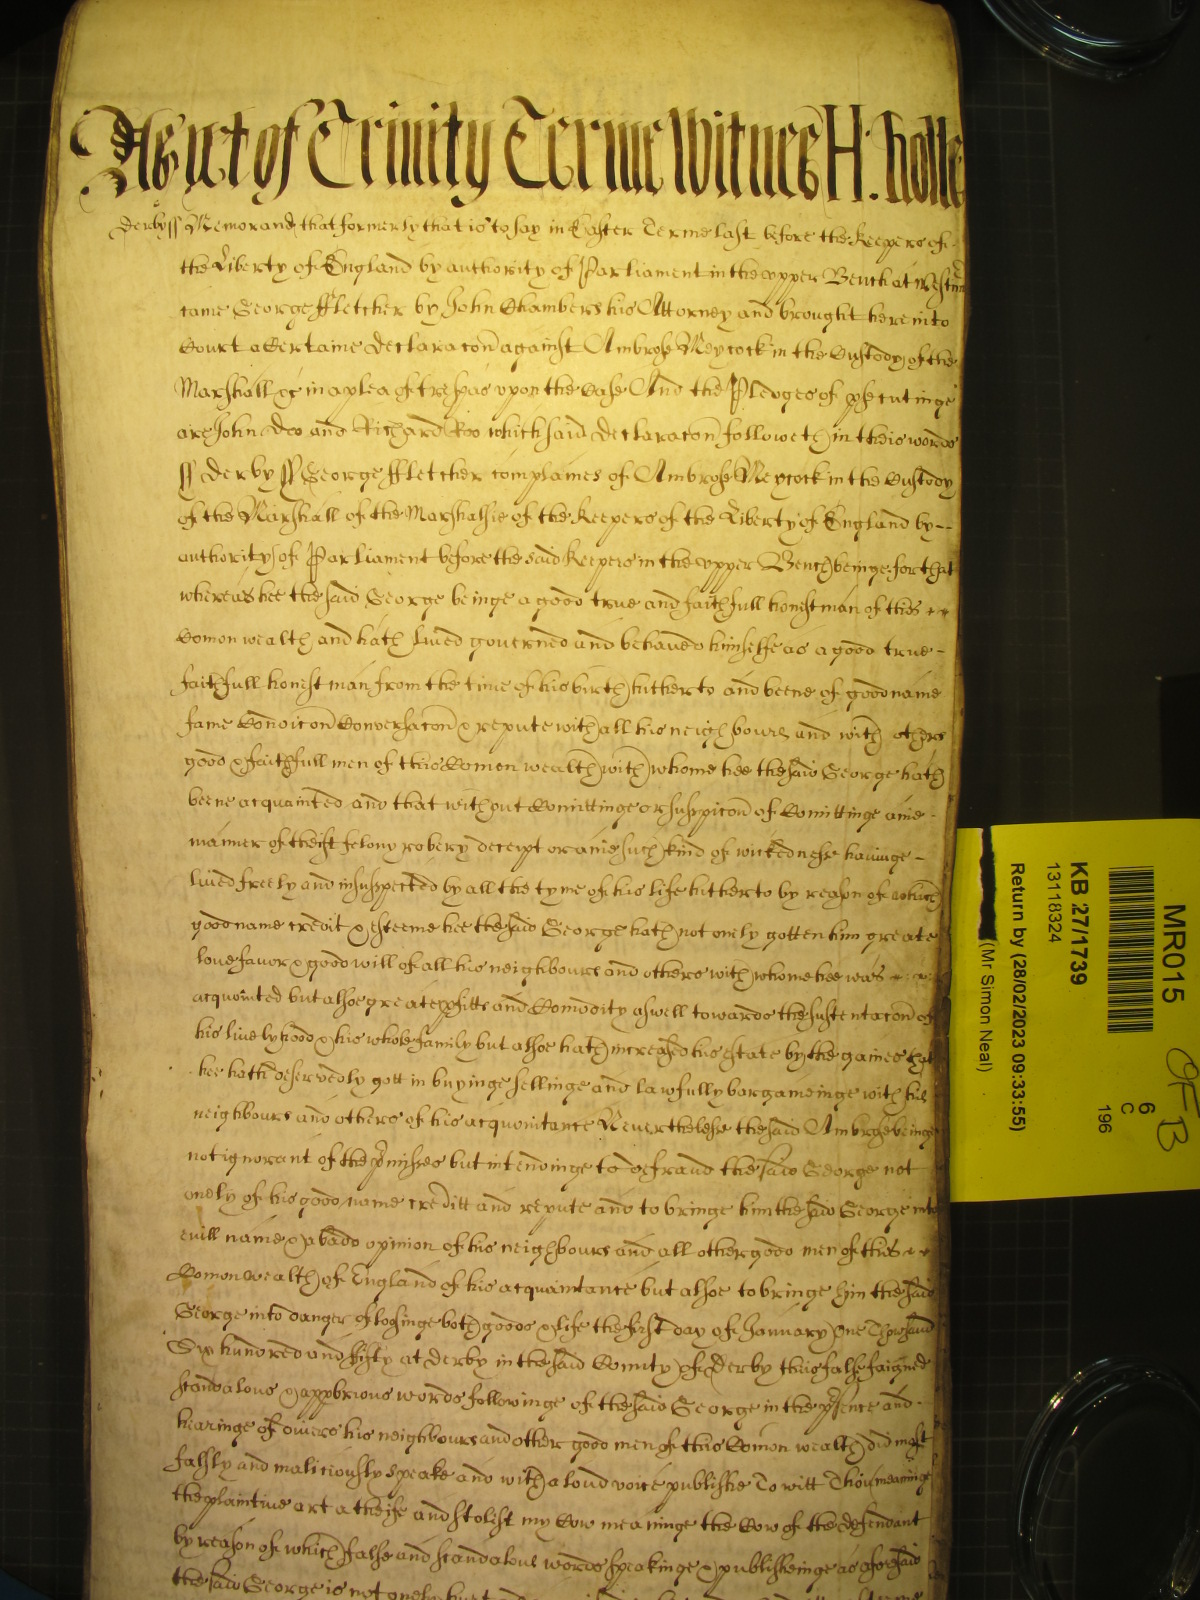 As yet of Trinity Terme Witnes H: Rolle
Derby ss Memorand that formerly that is to say in Easter Terme last before the Keepers of
the Liberty of England by authority of Parliament in the upper Bench at Westm
came George ffletcher by John Chambers his Attorney and brought here into
Court a Certaine Declaracon against Ambrose Meycock in the Custody of the
Marshall &c in a plea of trespas upon the Case And the Pledges of psecutinge
are John Doo and Richard Roo which said Declaracon followeth in theis words
ss Derby ss George ffletcher complaines of Ambrose Meycock in the Custody
of the Marshall of the Marshalsie of the Keepers of the Liberty of England by --
authority of Parliament before the said Keepers in the upper Bench beinge for that
whereas hee the said George beinge a good true and faithfull honest man of this
Comon wealth and hath lived governed and behaved himselfe as a good true -
faithfull honest man from the time of his birth hitherto and beene of good name
fame Condicon Conversacon & repute with all his neighbours and with others
good & faithfull men of this Comon wealth with whome hee the said George hath
beene acquainted and that without Comittinge or suspicon of Comittinge anie -
manner of theift felony robery deceipt or anie such kind of wickednesse havinge -
lived freely and insuspected by all the tyme of his life hitherto by reason of which
good name credit & esteeme hee the said George hath not onely gotten him greate
love favor & good will of all his neighbours and others with whome hee was
acquointed but alsoe greate pfitts and Comodity aswell towards the sustentacon of
his livelyhood & his whole family but alsoe hath increased his estate by the gaines that
hee hath deservedly gott in buyinge sellinge and lawfully bargaineinge with his
neighbours and others of his acquointance Neverthelesse the said Ambrose beinge
not ignorant of the pmisses but intendinge to defraud the said George not
onely of his good name creditt and repute and to bringe him the said George into
evill name & a badd opinion of his neighbours and all other good men of this
Comonwealth of England of his acquaintance but alsoe to bringe him the said
George into danger of losinge both goods & life the first day of January One Thousand
Six hundred and fifty at Derby in the said County of Derby this false faigned
scandalous & appbrious words followinge of the said George in the psence and -
hearinge of divers his neighbours and other good men of this Comon wealth did most
falsly and maliciously speake and with a loud voice publishe To witt Thou meaninge
the plaintive art a theife and stolest my Cow meaninge the Cow of the defendant
by reason of which false and scandalous words speakinge & publisheinge as aforesaid
the said George is not onely hurt
MR015
KB 27/1739
13118324
Return by (28/02/2023 09:33:55)
(Mr Simon Neal)
6
C
196
OFB